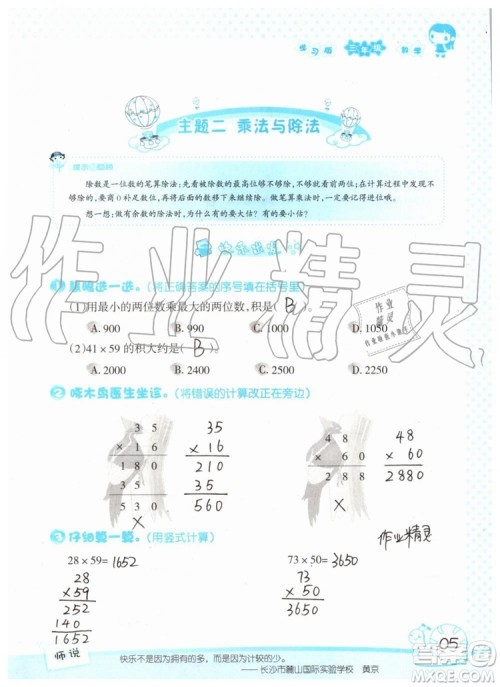 练习版 三年级 数学
主题二 乘法与除法
除数是一位数的笔算除法:先看被除数的最高位够不够除,不够除就看前两位;在计算过程中发现不够商0补足数位,再将后面的数移下来继续除。做笔算乘法时,一定要记得进位哦。
想一想:做有余数的除法时,为什么有的要大估?有的要小估?
快乐出发
1 (将正确答案的序号填在括号里)
(1)用最小的两位数乘最大的两位数,积是( B )
A. 900 B. 990 C. 1000 D. 1050
(2)41×59的积大约是( B )
A. 2000 B. 2400 C. 2500 D. 2250
2 啄木鸟医生坐诊。(将错误的计算改正在旁边)
3 5
× 1 6
1 8 0
3 5
5 3 0
X
35
× 16
210
35
560
4 8
× 6 0
2 8 8
X
48
× 60
2880
作业精灵
3 仔细算一算。(用竖式计算)
28×59=1652
28
×59
252
140
1652
73×50=3650
73
× 50
3650
师说
快乐不是因为拥有的多,而是因为计较的少。
——长沙市麓山国际实验学校 黄京
05
作业精灵
作业
精灵
答案圈
MXQE.COM